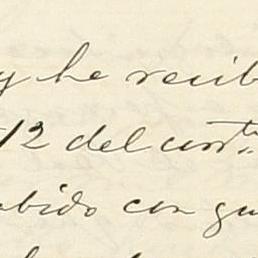 y he recib
12 del corrte
abido con gu